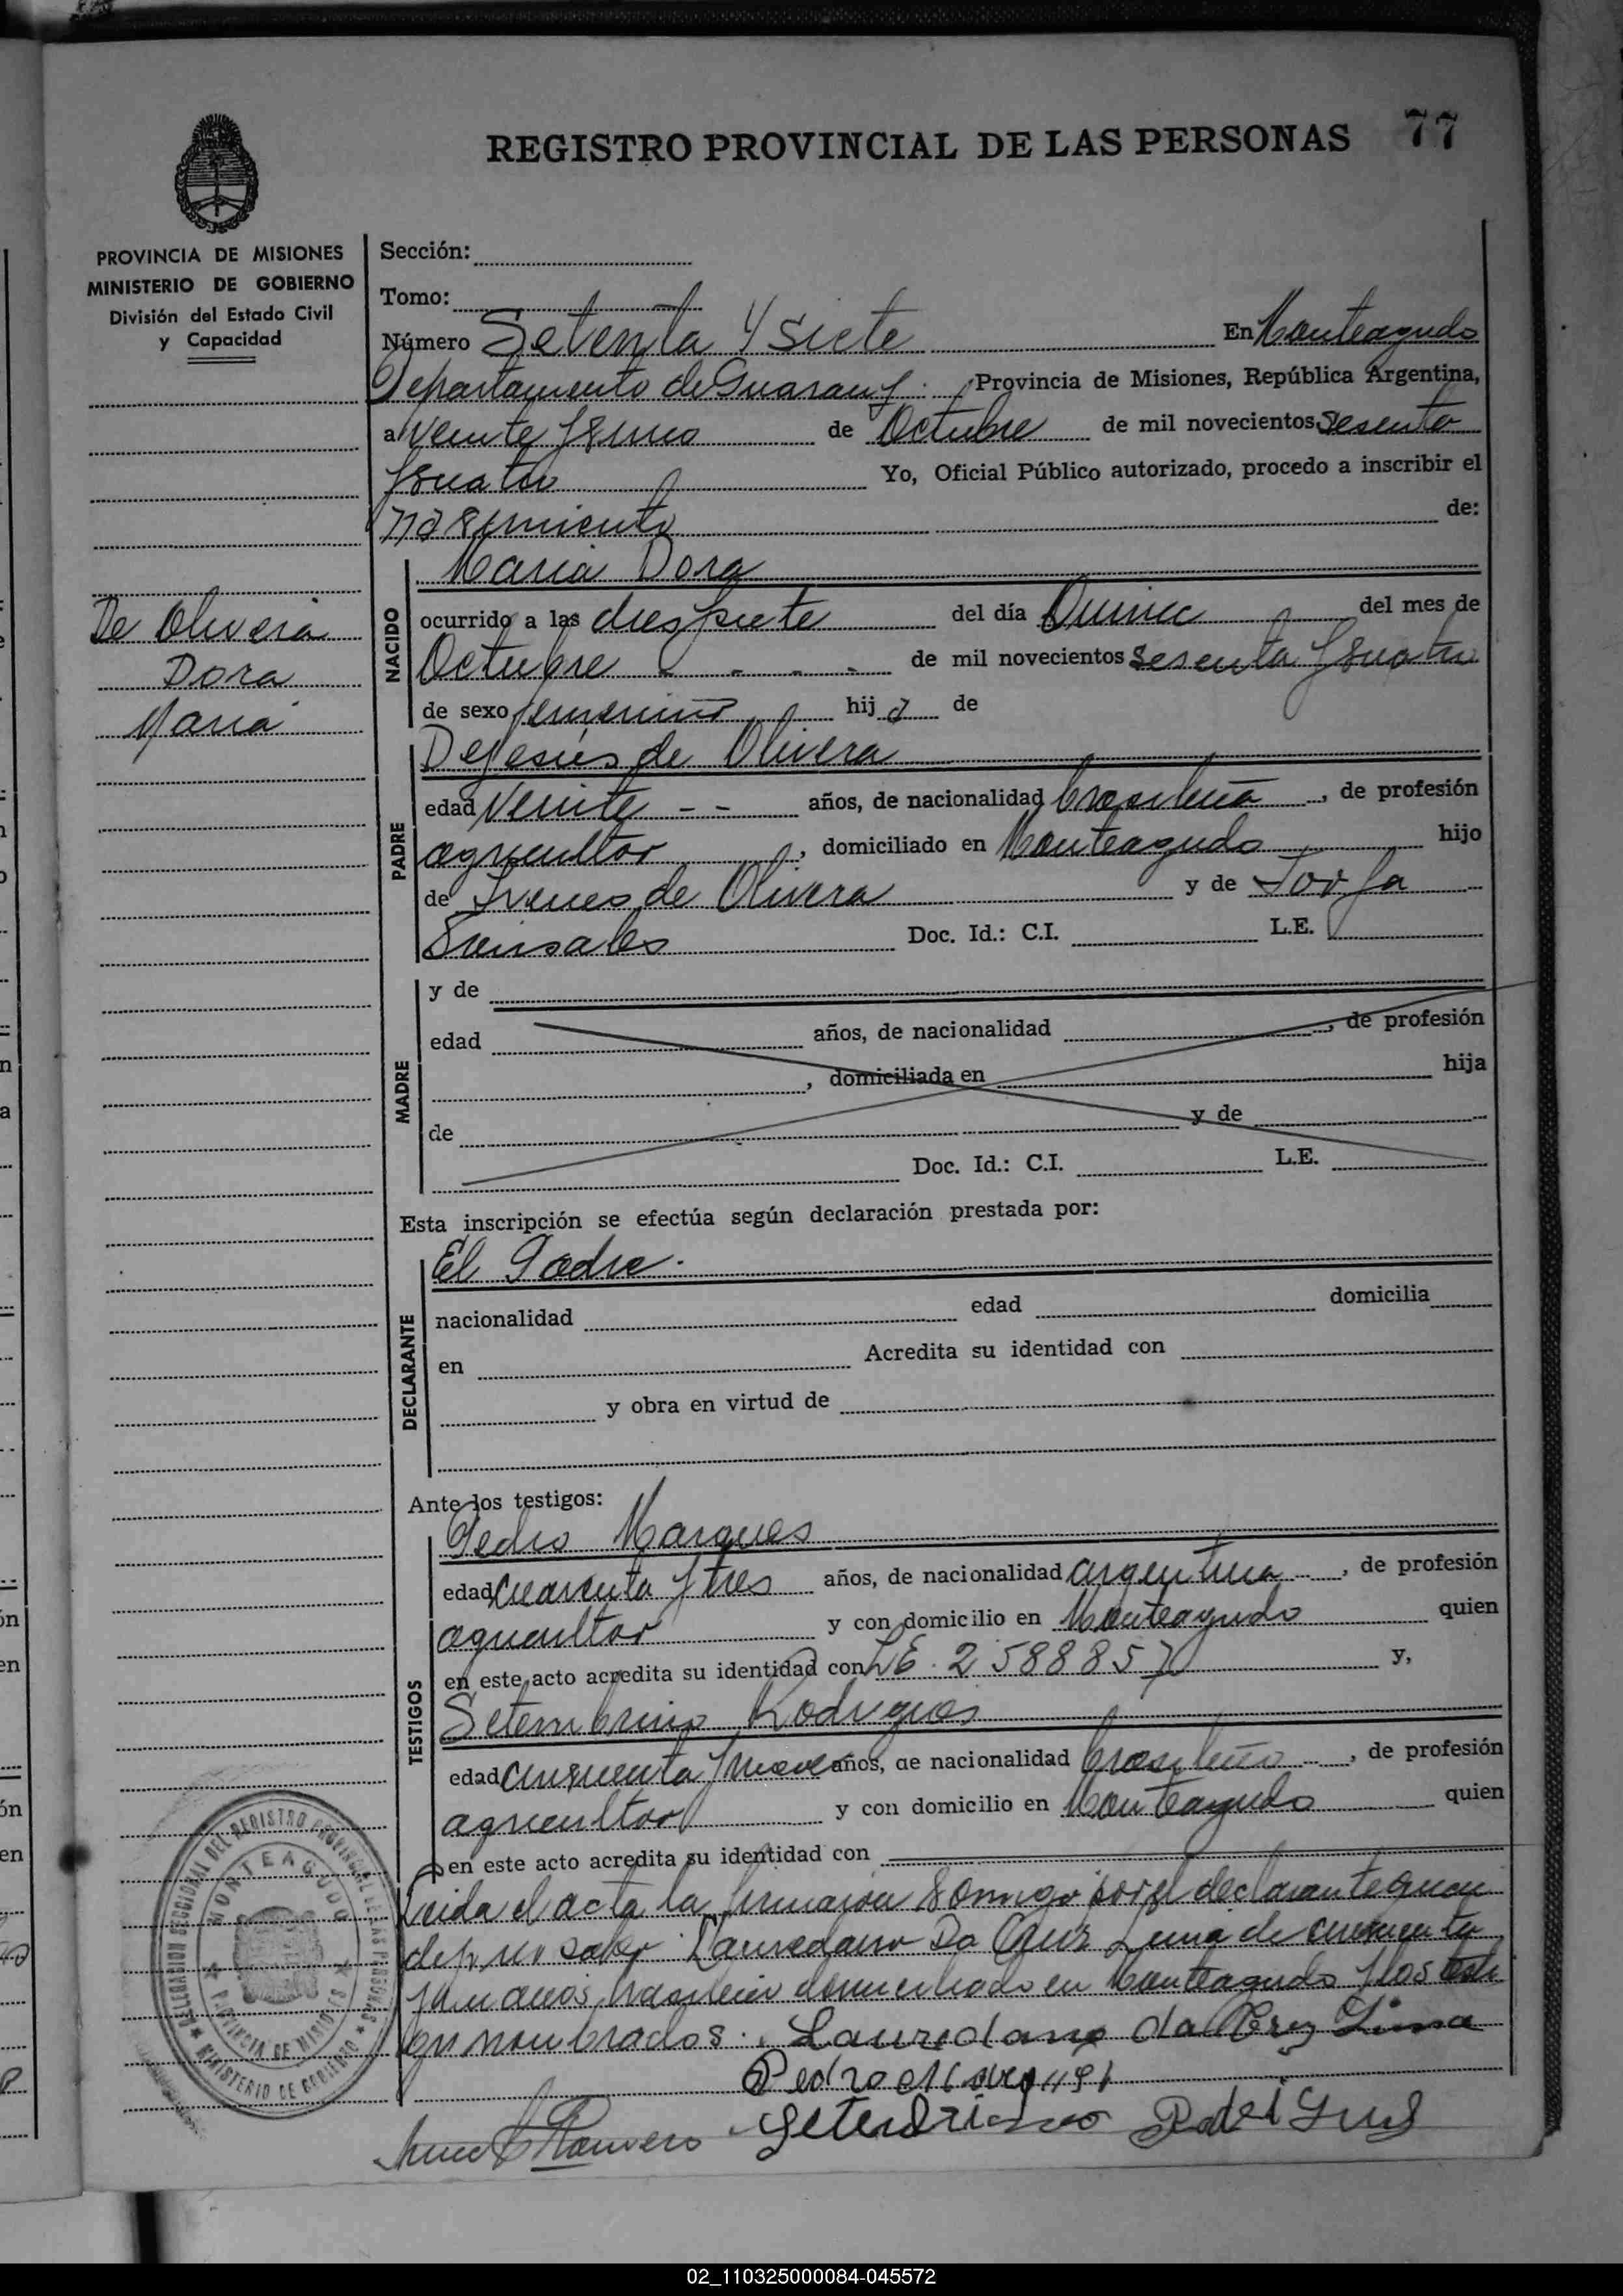 REGISTRO PROVINCIAL DE LAS PERSONAS 77
PROVINCIA DE MISIONES
MINISTERIO DE GOBIERNO
División del Estado Civil
y Capacidad
De Olivera
Dora
Maria
Sección:
Tomo:
Número Setenta y siete En Monteagudo
Departamento de Guarany Provincia de Misiones, República Argentina,
a veinte y sinco de Octubre de mil novecientos sesenta
y suatro Yo, Oficial Público autorizado, procedo a inscribir el
nasimiento de:
NACIDO
Maria Dora
ocurrido a las dies y siete del día Quince del mes de
Octubre - - - - de mil novecientos sesenta y suatro
de sexo femenino hij a de
PADRE
Dejesús de Olivera
edad veinte - - años, de nacionalidad brasileña, de profesión
agricultor, domiciliado en Monteagudo hijo
de de Olivera y de
Doc. Id.: C.I. L.E.
MADRE
y de
edad años, de nacionalidad, de profesión
, domiciliada en hija
de y de
Doc. Id.: C.I. L.E.
Esta inscripción se efectúa según declaración prestada por:
DECLARANTE
El Padre.
nacionalidad edad domicilia
en Acredita su identidad con
y obra en virtud de
Ante los testigos:
TESTIGOS
Pedro Marques
edad cuarenta y tres años, de nacionalidad argentina, de profesión
agricultor y con domicilio en Monteagudo quien
en este acto acredita su identidad con L E. 2588857 y,
Setembrino Rodrigues
edad años, de nacionalidad brasileño, de profesión
agricultor y con domicilio en Monteagudo quien
en este acto acredita su identidad con
Leida el acta la firmaron conmigo por el declarante quien
saber Lauredano Da Cruz Lima de
años, domiciliado en Monteagudo y los
nombrados. Lauredano da Cruz Lima
DELEGACION SECCIONAL DEL REGISTRO PROVINCIAL DE LAS PERSONAS
MONTEAGUDO
PROVINCIA DE MISIONES
MINISTERIO DE GOBIERNO
02_110325000084-045572